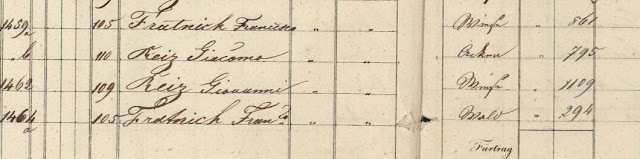 1459a 105 Fratnich Francesco " " Wiese " 861
" b 110 Reiz Giacomo " " Acker " 795
1462 109 Reiz Giovanni " " Wiese " 1109
1464a 105 Fratnich Franco " " Wald " 294
Fürtrag